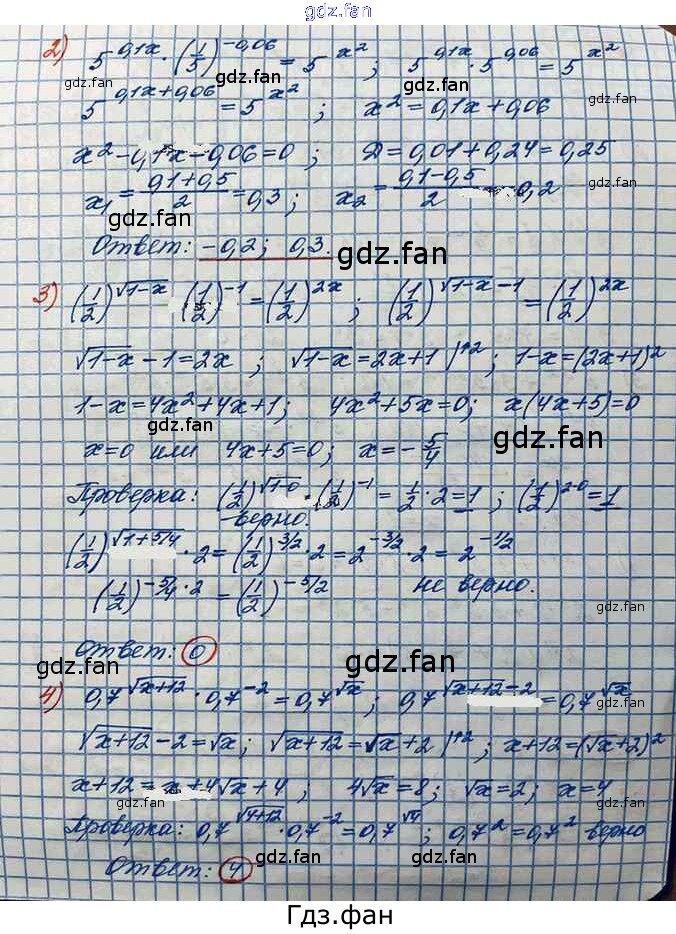 gdz.fan
2) 5^(0,1x) · (1/5)^(-0,06) = 5^(x²) ; 5^(0,1x) · 5^(0,06) = 5^(x²)
gdz.fan gdz.fan gdz.fan
5^(0,1x+0,06) = 5^(x²) ; x² = 0,1x + 0,06
gdz.fan
x² - 0,1x - 0,06 = 0 ; D = 0,01 + 0,24 = 0,25
x₁ = (0,1+0,5)/2 = 0,3 ; x₂ = (0,1-0,5)/2 0,2
gdz.fan gdz.fan
Ответ: -0,2; 0,3.
gdz.fan gdz.fan
3) (1/2)^(√(1-x)) (1/2)^(-1) = (1/2)^(2x) ; (1/2)^(√(1-x) -1) = (1/2)^(2x)
√(1-x) - 1 = 2x ; √(1-x) = 2x+1 |↑2 ; 1-x = (2x+1)²
1-x = 4x²+4x+1; 4x²+5x=0; x(4x+5)=0
gdz.fan gdz.fan gdz.fan
x=0 или 4x+5=0; x = -5/4
Проверка: (1/2)^(√(1-0)) · (1/2)^(-1) = 1/2 · 2 = 1 ; (1/2)^(2·0) = 1
gdz.fan gdz.fan
- верно.
(1/2)^(√(1+5/4)) · 2 = (1/2)^(3/2) · 2 = 2^(-3/2) · 2 = 2^(-1/2)
(1/2)^(-5/4 · 2) = (1/2)^(-5/2) не верно.
gdz.fan gdz.fan
Ответ: 0
gdz.fan gdz.fan gdz.fan
4) 0,7^(√(x+12)) · 0,7^(-2) = 0,7^(√x) ; 0,7^(√(x+12) -2) = 0,7^(√x)
gdz.fan gdz.fan
√(x+12) - 2 = √x ; √(x+12) = √x + 2 |↑2 ; x+12 = (√x+2)²
x+12 = x+4√x+4 ; 4√x = 8; √x = 2; x = 4
gdz.fan gdz.fan
Проверка: 0,7^(√(4+12)) · 0,7^(-2) = 0,7^(√4) ; 0,7² = 0,7² верно
gdz.fan gdz.fan
Ответ: 4
gdz.fan
Гдз.фан